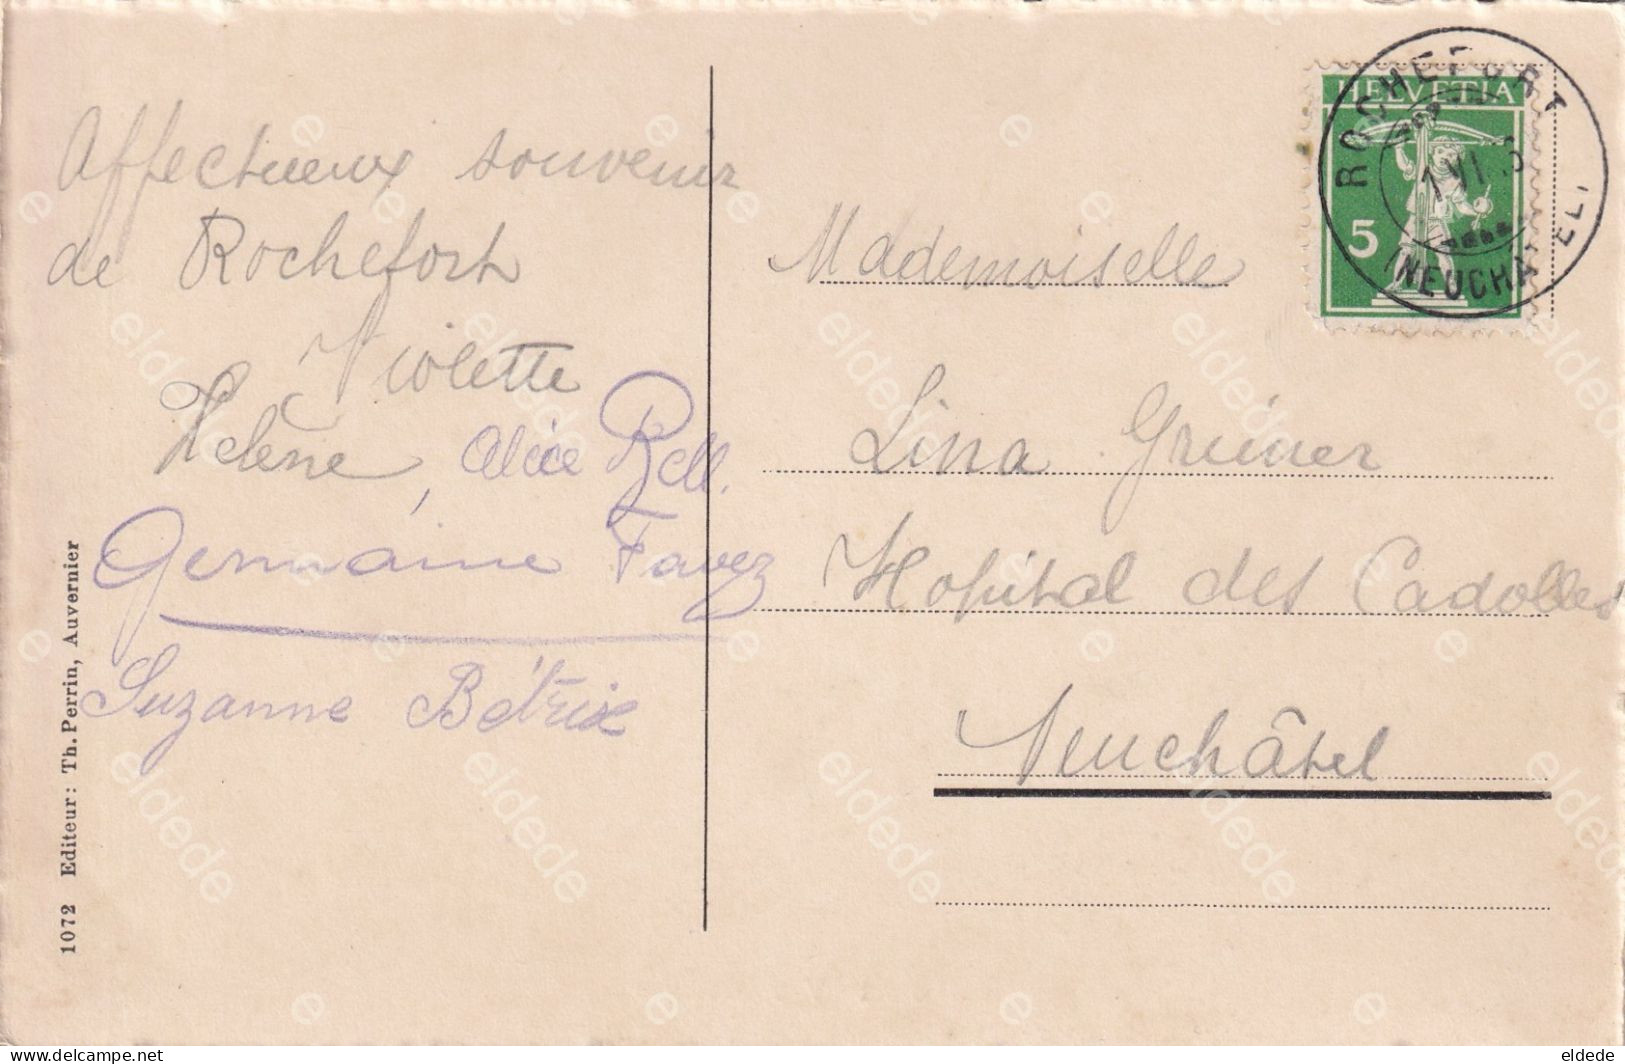 Affectueux souvenir
de Rochefort
Violette
Hélène, Alice Bell.
Germaine Favez
Suzanne Bétrix
1072 Editeur: Th. Perrin, Auvernier
HELVETIA
5
ROCHEFORT
(NEUCHATEL)
Mademoiselle
Lina Grüner
Hopital des Cadolles
Neuchâtel
eldede
delcampe.net